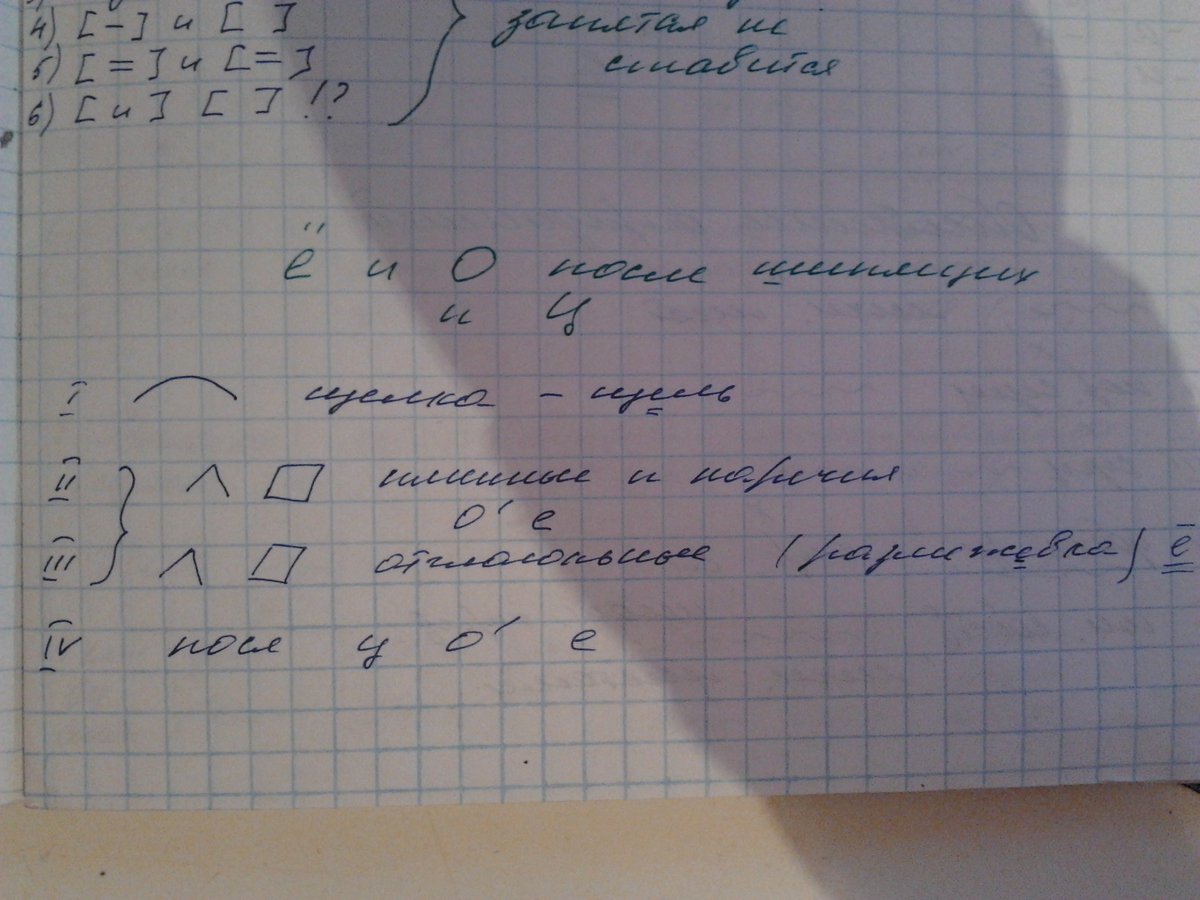 4) [-] и [ ]
5) [=] и [=]
6) [ и ] [ ] !?
запятая не
ставится
ё и О после шипящих
и Ц
I щелка - щель
II именные и наречия
о' е
III отглагольные (размежевка) ё
IV посл ц о' е